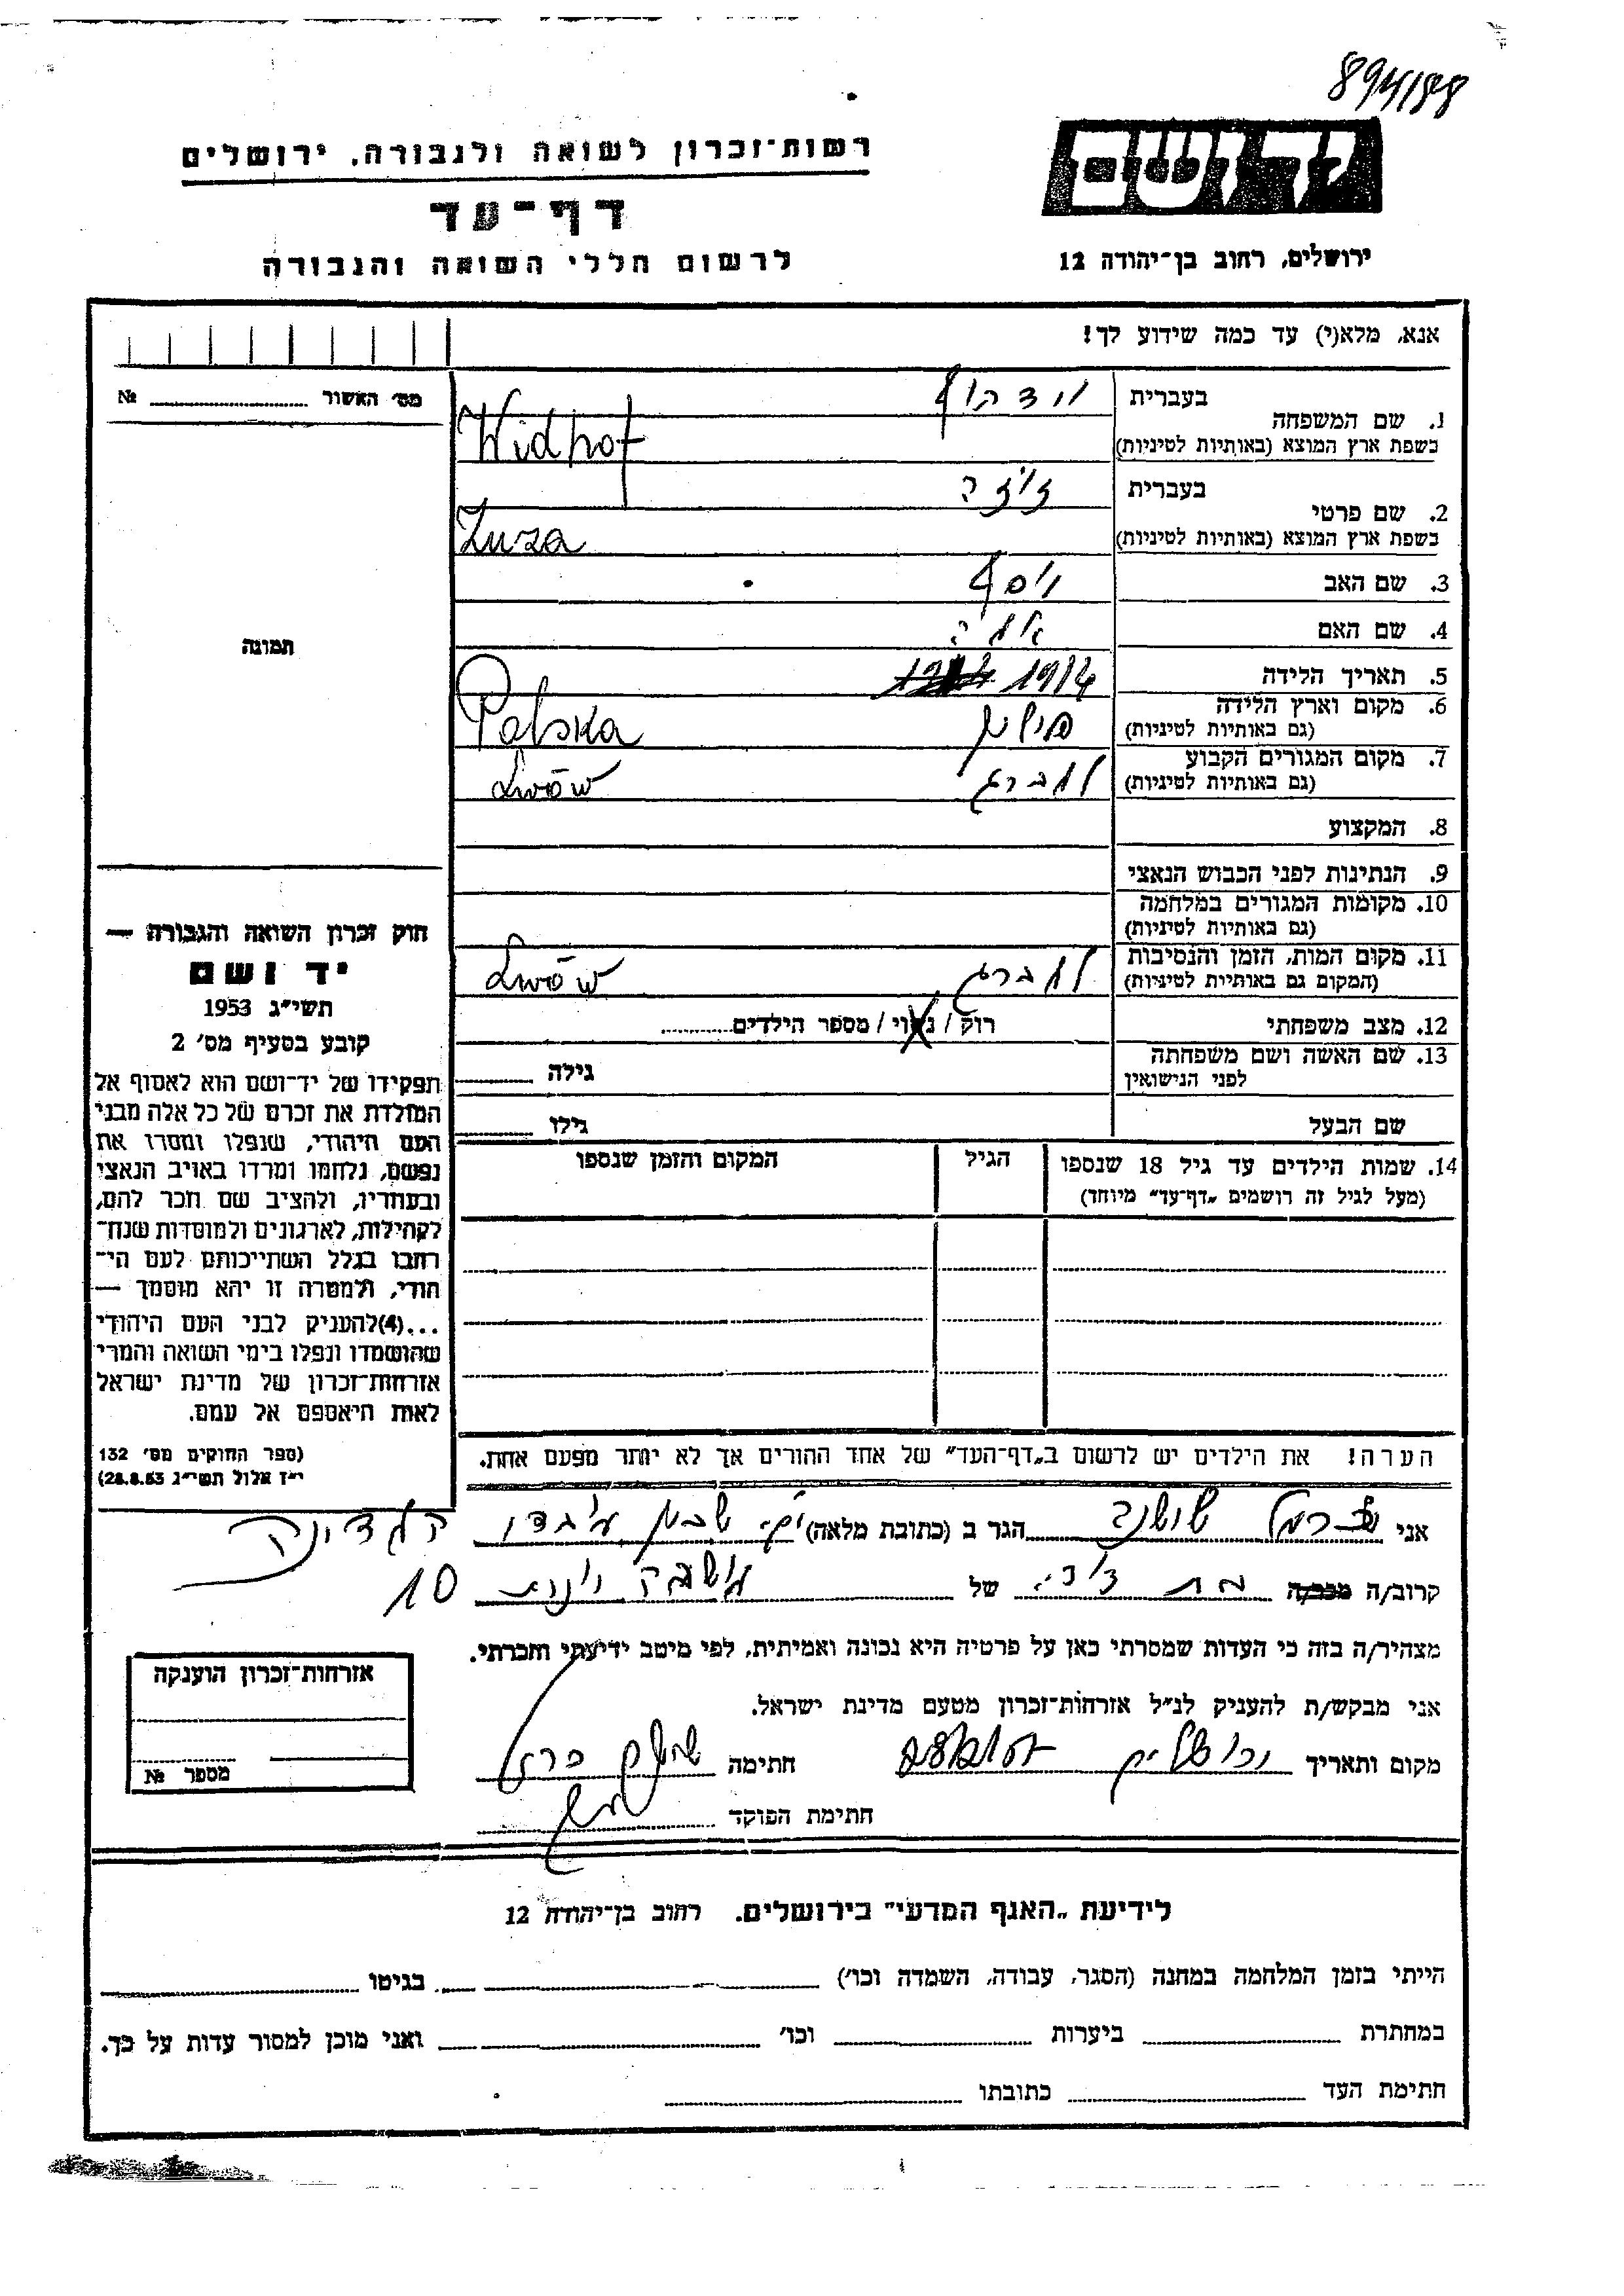 894/88
רשות־זכרון לשואה ולגבורה, ירושלים
יד ושם
דף־עד
לרשום חללי השואה והגבורה
ירושלים, רחוב בן־יהודה 12
אנא, מלא(י) עד כמה שידוע לך!
מס׳ האשור ........ №
תמונה
1. שם המשפחה
בעברית וידהוף
בשפת ארץ המוצא (באותיות לטיניות) Widhof
2. שם פרטי
בעברית זוזה
בשפת ארץ המוצא (באותיות לטיניות) Zuza
3. שם האב יוסף
4. שם האם
5. תאריך הלידה 1914
6. מקום וארץ הלידה
(גם באותיות לטיניות) פולין Polska
7. מקום המגורים הקבוע
(גם באותיות לטיניות) למברג Lwów
8. המקצוע
9. הנתינות לפני הכבוש הנאצי
10. מקומות המגורים במלחמה
(גם באותיות לטיניות)
11. מקום המות, הזמן והנסיבות
(המקום גם באותיות לטיניות) למברג Lwów
12. מצב משפחתי רוק / נשוי / מספר הילדים........
13. שם האשה ושם משפחתה
לפני הנישואין גילה
שם הבעל גילו
14. שמות הילדים עד גיל 18 שנספו הגיל המקום והזמן שנספו
(מעל לגיל זה רושמים „דף־עד״ מיוחד)
הערה! את הילדים יש לרשום ב„דף־העד״ של אחד ההורים אך לא יותר מפעם אחת.
חוק זכרון השואה והגבורה —
יד ושם
תשי״ג 1953
קובע בסעיף מס׳ 2
תפקידו של יד־ושם הוא לאסוף אל
המולדת את זכרם של כל אלה מבני
העם היהודי, שנפלו ומסרו את
נפשם, נלחמו ומרדו באויב הנאצי
ובעוזריו, ולהציב שם וזכר להם,
לקהילות, לארגונים ולמוסדות שנח־
רבו בגלל השתייכותם לעם הי־
הודי, ולמטרה זו יהא מוסמך —
...(4)להעניק לבני העם היהודי
שהושמדו ונפלו בימי השואה והמרי
אזרחות־זכרון של מדינת ישראל
לאות היאספם אל עמם.
(ספר החוקים מס׳ 132
י״ז אלול תשי״ג 28.8.53)
אני כרמל שושנה הגר ב (כתובת מלאה)
קרוב/ה מכר/ה בת דודה של 10
מצהיר/ה בזה כי העדות שמסרתי כאן על פרטיה היא נכונה ואמיתית, לפי מיטב ידיעתי והכרתי.
אני מבקש/ת להעניק לנ״ל אזרחות־זכרון מטעם מדינת ישראל.
מקום ותאריך ירושלים חתימה
חתימת הפוקד
אזרחות־זכרון הוענקה
מספר №
לידיעת „האגף המדעי״ בירושלים. רחוב בן־יהודה 12
הייתי בזמן המלחמה במחנה (הסגר, עבודה, השמדה וכו׳) בגיטו
במחתרת ביערות וכו׳ ואני מוכן למסור עדות על כך.
חתימת העד כתובתו